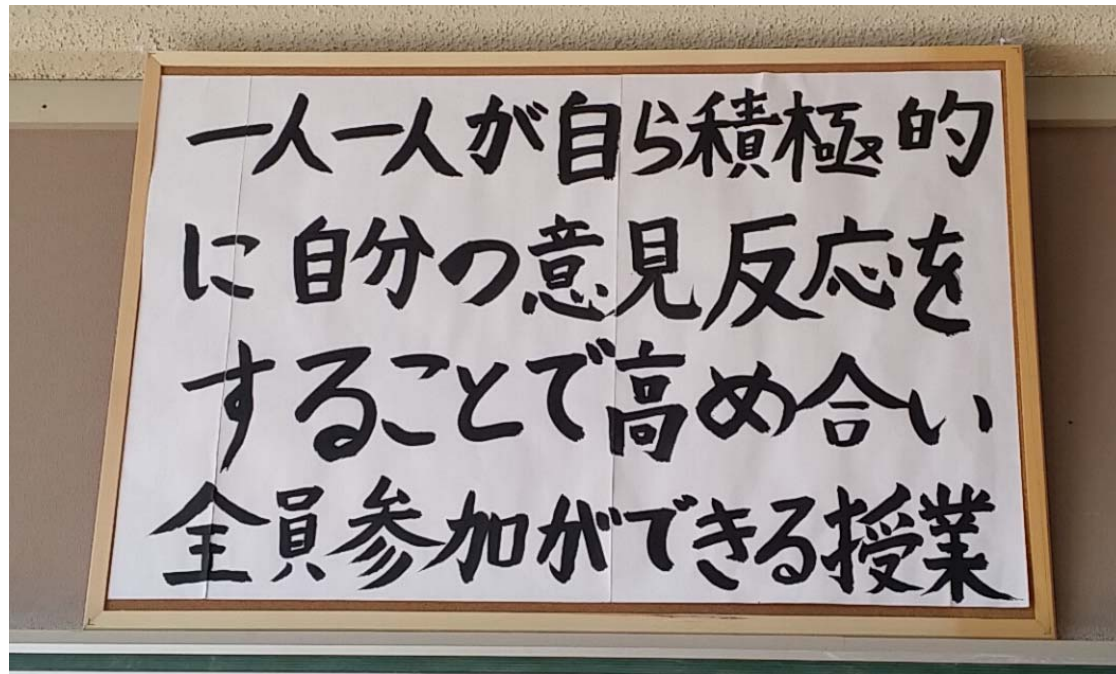 一人一人が自ら積極的
に自分の意見反応を
することで高め合い
全員参加ができる授業